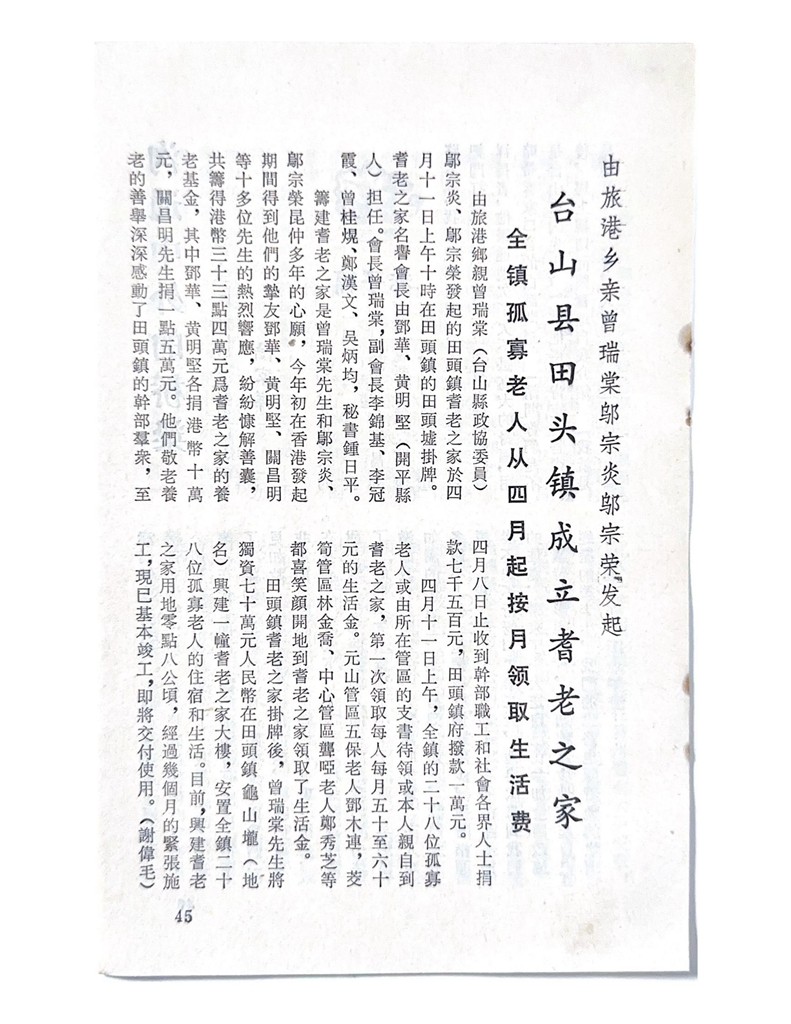 由旅港乡亲曾瑞棠邬宗炎邬宗荣发起
台山县田头镇成立耆老之家
全镇孤寡老人从四月起按月领取生活费
由旅港鄉親曾瑞棠（台山縣政協委員）
鄔宗炎、鄔宗榮發起的田頭鎮耆老之家於四
月十一日上午十時在田頭鎮的田頭墟掛牌。
耆老之家名譽會長由鄧華、黄明堅（開平縣
人）担任。會長曾瑞棠，副會長李錦基、李冠
霞、曾桂焜、鄭漢文、吴炳均，秘書鍾日平。
籌建耆老之家是曾瑞棠先生和鄔宗炎、
鄔宗榮昆仲多年的心願，今年初在香港發起
期間得到他們的摯友鄧華、黄明堅、關昌明
等十多位先生的熱烈響應，紛紛慷解善囊，
共籌得港幣三十三點四萬元爲耆老之家的養
老基金，其中鄧華、黄明堅各捐港幣十萬
元，關昌明先生捐一點五萬元。他們敬老養
老的善舉深深感動了田頭鎮的幹部羣衆，至
四月八日止收到幹部職工和社會各界人士捐
款七千五百元，田頭鎮府撥款一萬元。
四月十一日上午，全鎮的二十八位孤寡
老人或由所在管區的支書待領或本人親自到
耆老之家，第一次領取每人每月五十至六十
元的生活金。元山管區五保老人鄧木連，茭
筍管區林金喬、中心管區聾啞老人鄭秀芝等
都喜笑顔開地到耆老之家領取了生活金。
田頭鎮耆老之家掛牌後，曾瑞棠先生將
獨資七十萬元人民幣在田頭鎮龜山壠（地
名）興建一幢耆老之家大樓，安置全鎮二十
八位孤寡老人的住宿和生活。目前，興建耆老
之家用地零點八公頃，經過幾個月的緊張施
工，現已基本竣工，即將交付使用。（謝偉毛）
45